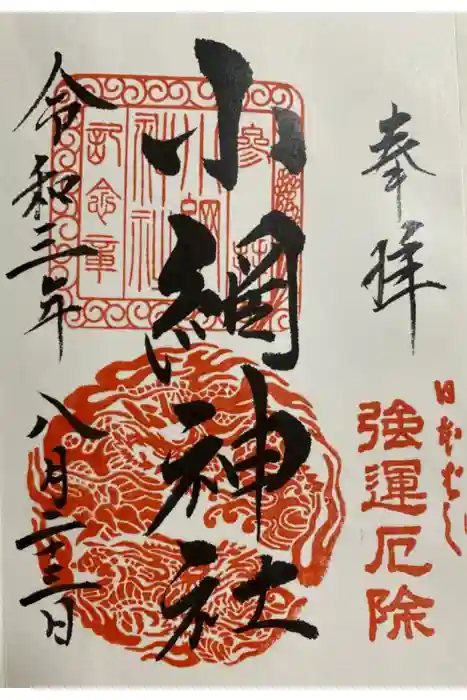 奉拝
日本ばし
強運厄除
小網神社
小網
神社
記念章
令和三年八月二十三日